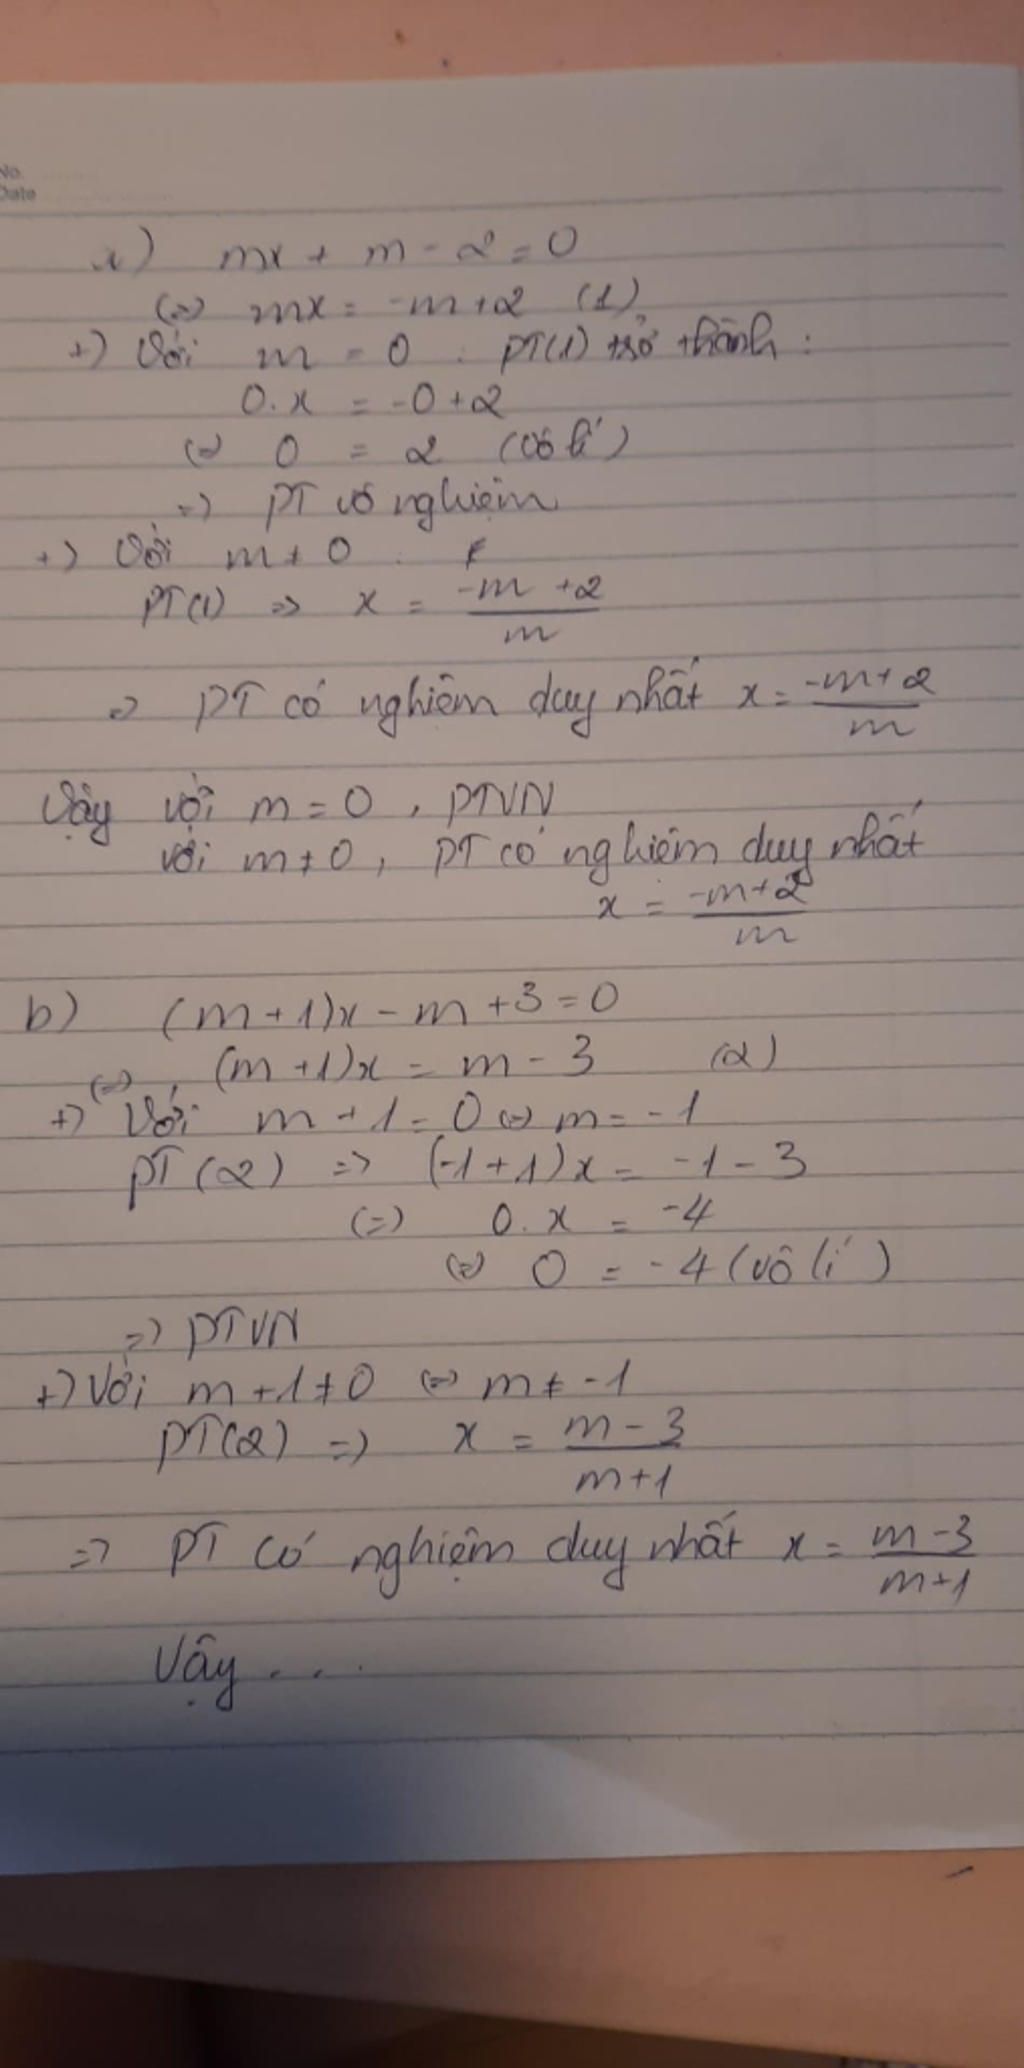 No.
Date
a) mx + m - 2 = 0
(=) mx = -m+2 (1)
+) Với m = 0 : PT(1) trở thành :
0.x = -0+2
(=) 0 = 2 (vô lí)
=> PT vô nghiệm
+) Với m ≠ 0 :
PT(1) => x = \frac{-m+2}{m}
=> PT có nghiệm duy nhất x = \frac{-m+2}{m}
Vậy với m = 0, PTVN
với m ≠ 0, PT có nghiệm duy nhất
x = \frac{-m+2}{m}
b) (m+1)x - m + 3 = 0
(=) (m+1)x = m - 3 (2)
+) Với m + 1 = 0 (=) m = -1
PT(2) => (-1+1)x = -1-3
(=) 0.x = -4
(=) 0 = -4 (vô lí)
=> PTVN
+) Với m+1 ≠ 0 (=) m ≠ -1
PT(2) => x = \frac{m-3}{m+1}
=> PT có nghiệm duy nhất x = \frac{m-3}{m+1}
Vậy ...